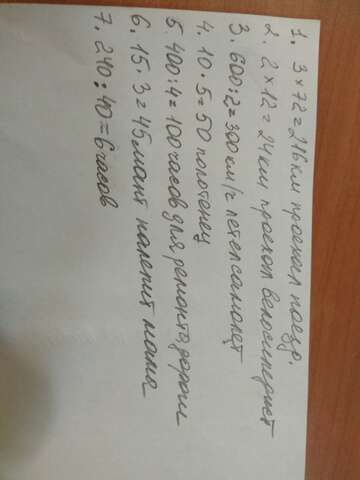 1. 3×72=216км проехал поезд.
2. 2×12=24км проехал велосиперист
3. 600:2=300км/ч летел самолет
4. 10·5=50 полотенец
5. 400:4=100часов для ремонта дороги
6. 15·3=45мант налепит мама
7. 240:40=6часов